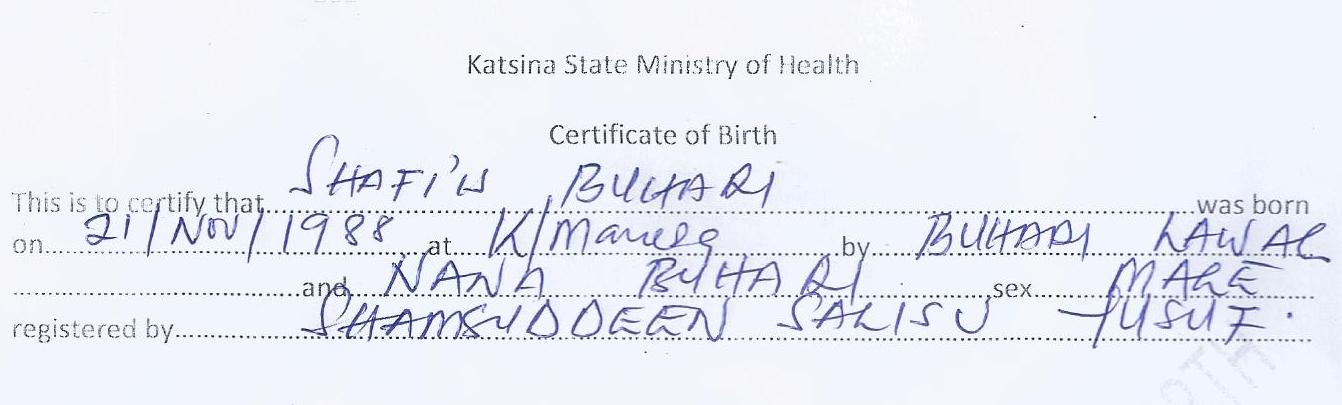 Katsina State Ministry of Health
Certificate of Birth
This is to certify that SHAFI'U BUHARI was born
on 21/NOV/1988 at K/ by BUHARI LAWAL
and NANA BUHARI sex MALE
registered by SHAMSUDDEEN SALISU YUSUF.